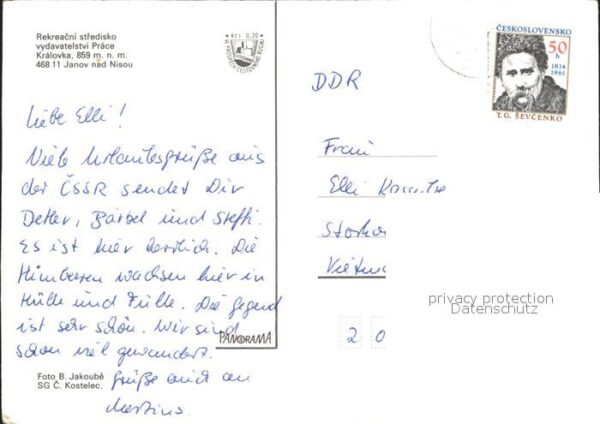 Rekreační středisko
vydavatelství Práce
Královka, 859 m. n. m.
468 11 Janov nad Nisou
Kčs 0,20
ČESKOSLOVENSKO
50
h
1814
1861
T. G. ŠEVČENKO
Liebe Elli!
Viele Urlaubsgrüße aus
der ČSSR sendet Dir
Detlev, Bärbel und Steffi.
Es ist hier herrlich. Die
Himbeeren wachsen hier in
Hülle und Fülle. Die Gegend
ist sehr schön. Wir sind
schon viel gewandert.
Grüße auch an
Martins.
DDR
Frau
Elli
privacy protection
Datenschutz
2 0
PANORAMA
Foto B. Jakoubě
SG Č. Kostelec